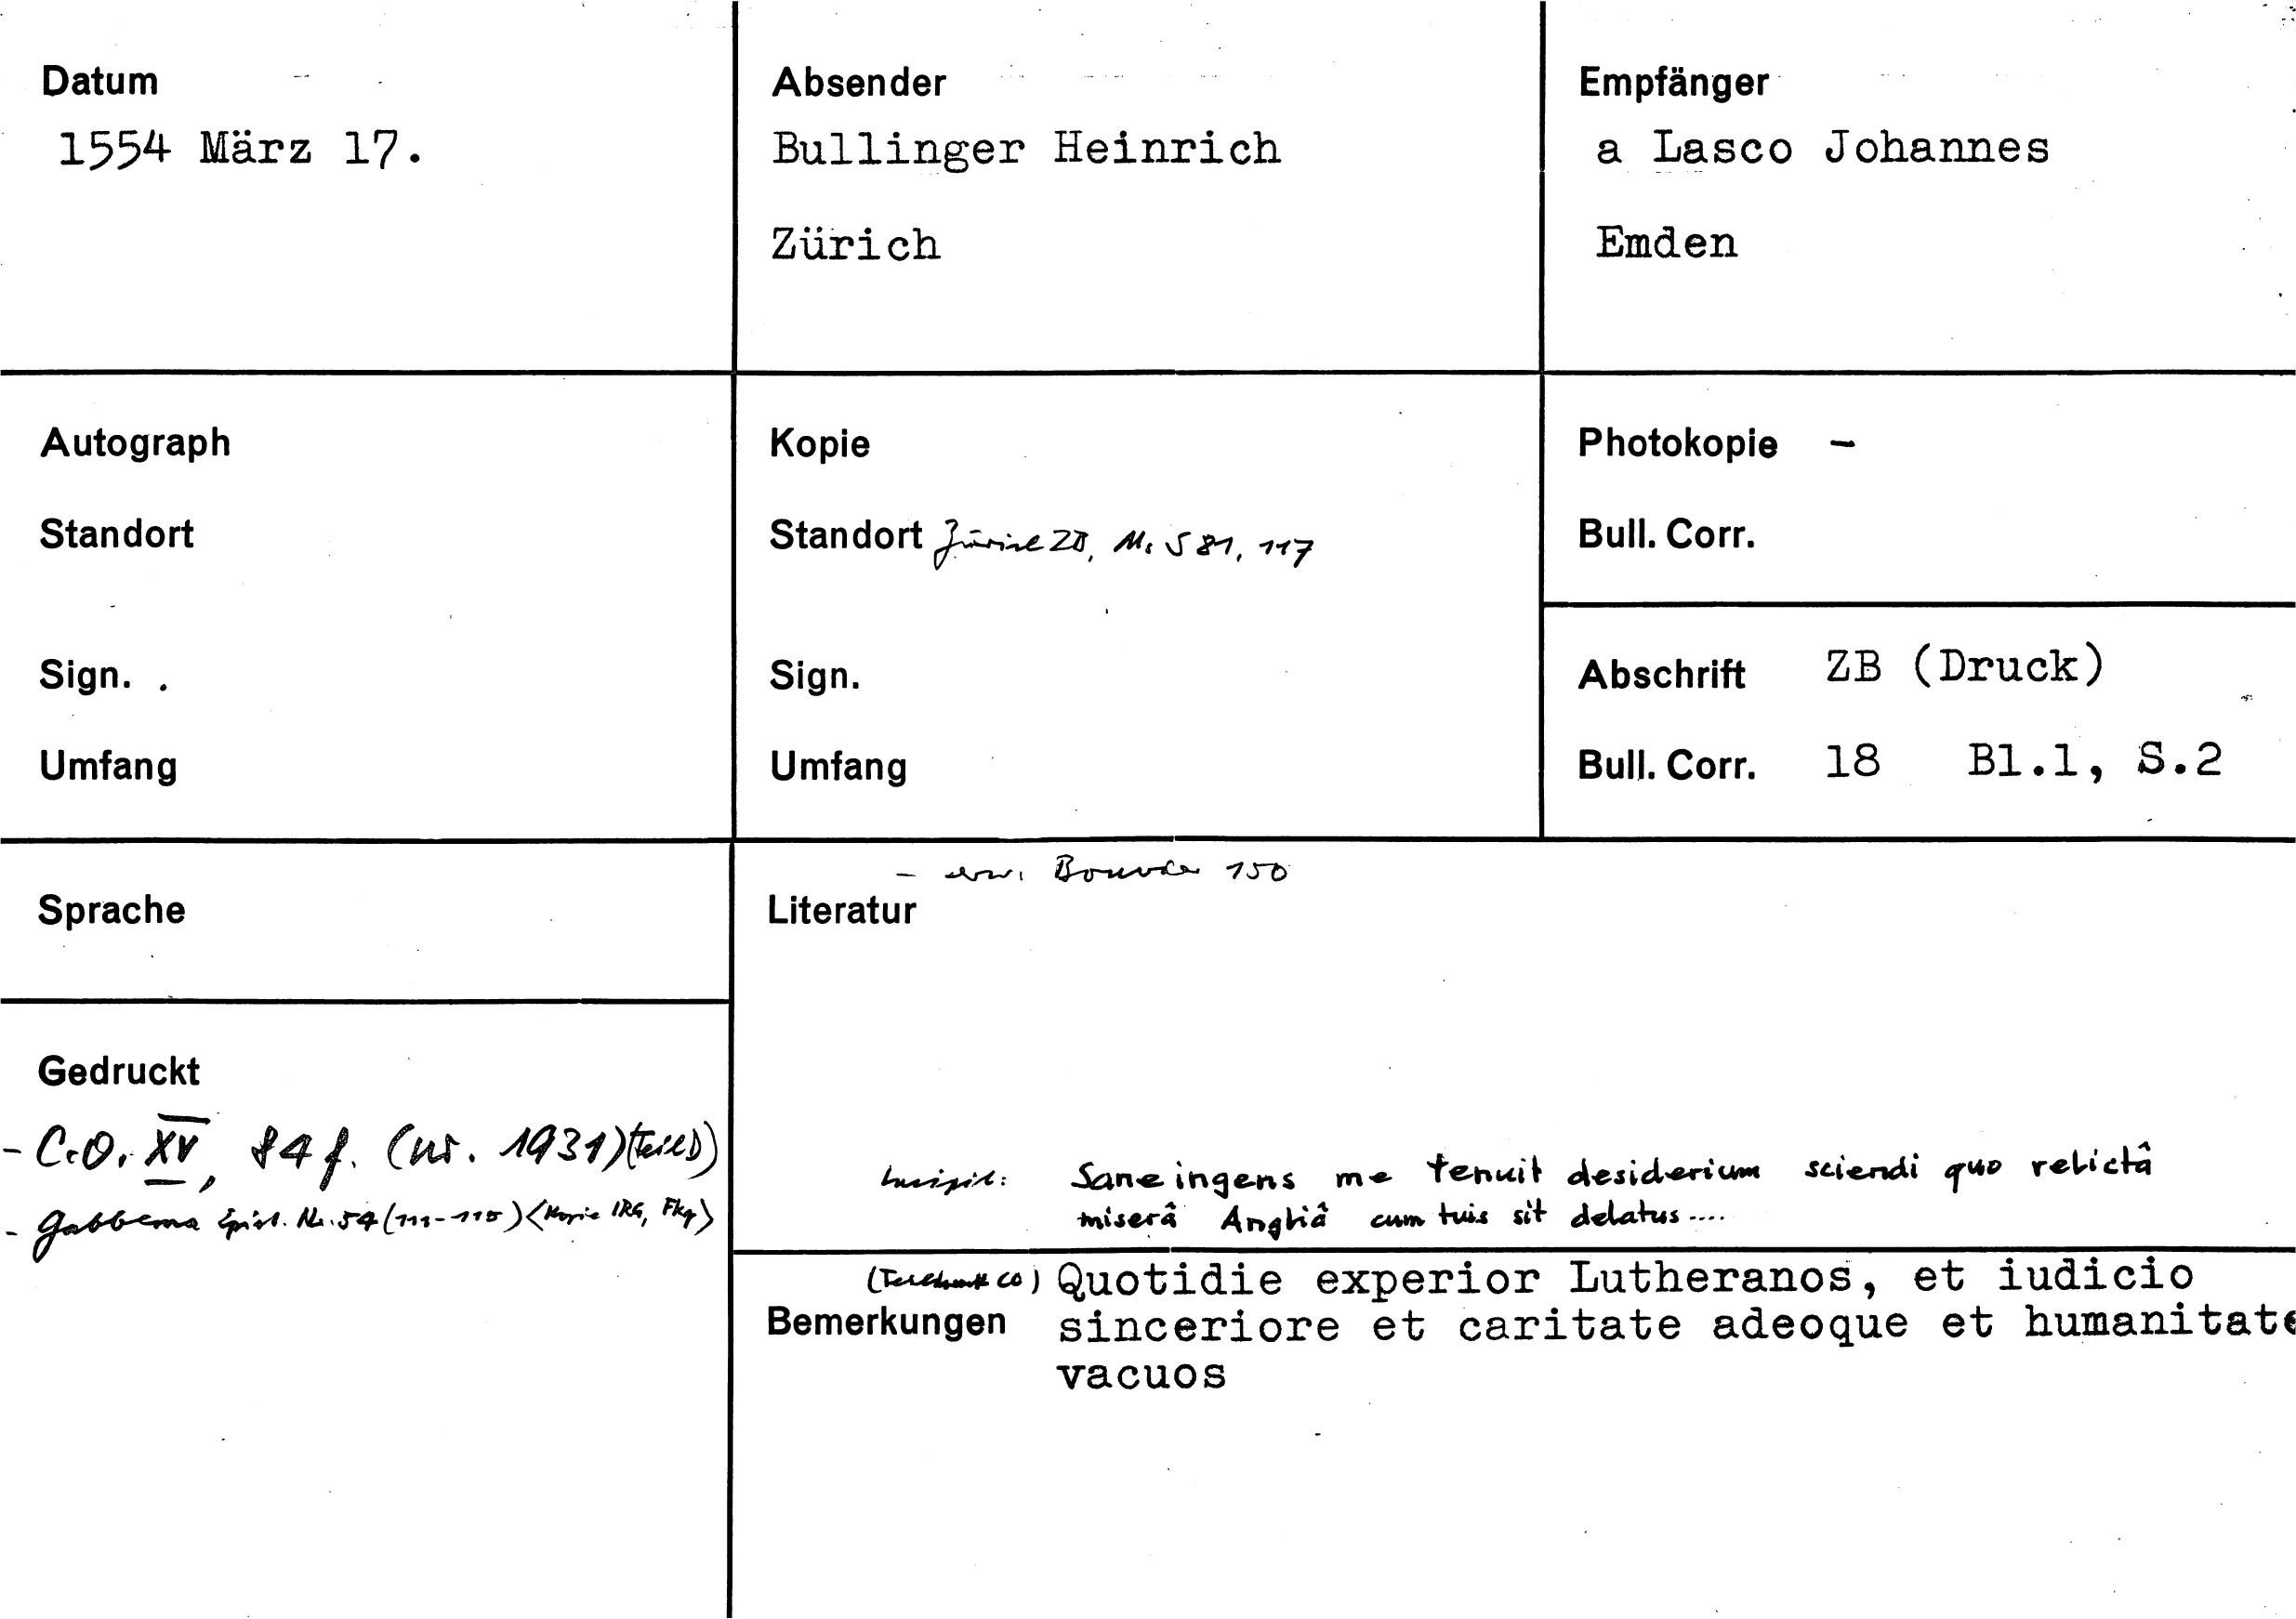 Datum
1554 März 17.
Absender
Bullinger Heinrich
Zürich
Empfänger
a Lasco Johannes
Emden
Autograph
Standort
Sign.
Umfang
Kopie
Standort Zürich ZB, Ms S 81, 117
Sign.
Umfang
Photokopie -
Bull. Corr.
Abschrift ZB (Druck)
Bull. Corr. 18 Bl.1, S.2
Sprache
- erw. Bouvier 150
Literatur
Gedruckt
- C.O. XV, 84 f. (nr. 1931)
- Gabbema Epist. Nr. 54 (111-115) <Kopie IRG, Fkp>
Incipit: Sane ingens me tenuit desiderium sciendi quo relictâ
miserâ Angliâ cum tuis sit delatus....
(Teildruck CO) Quotidie experior Lutheranos, et iudicio
Bemerkungen sinceriore et caritate adeoque et humanitate
vacuos